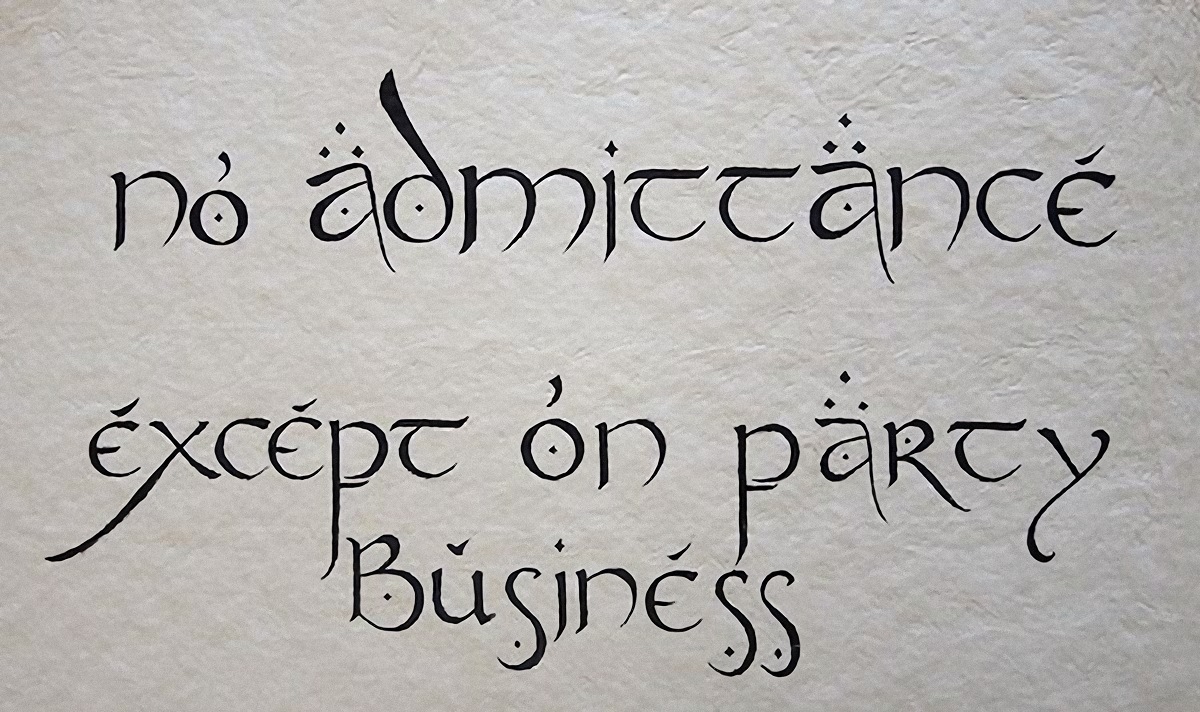 no admittance
except on party
Business